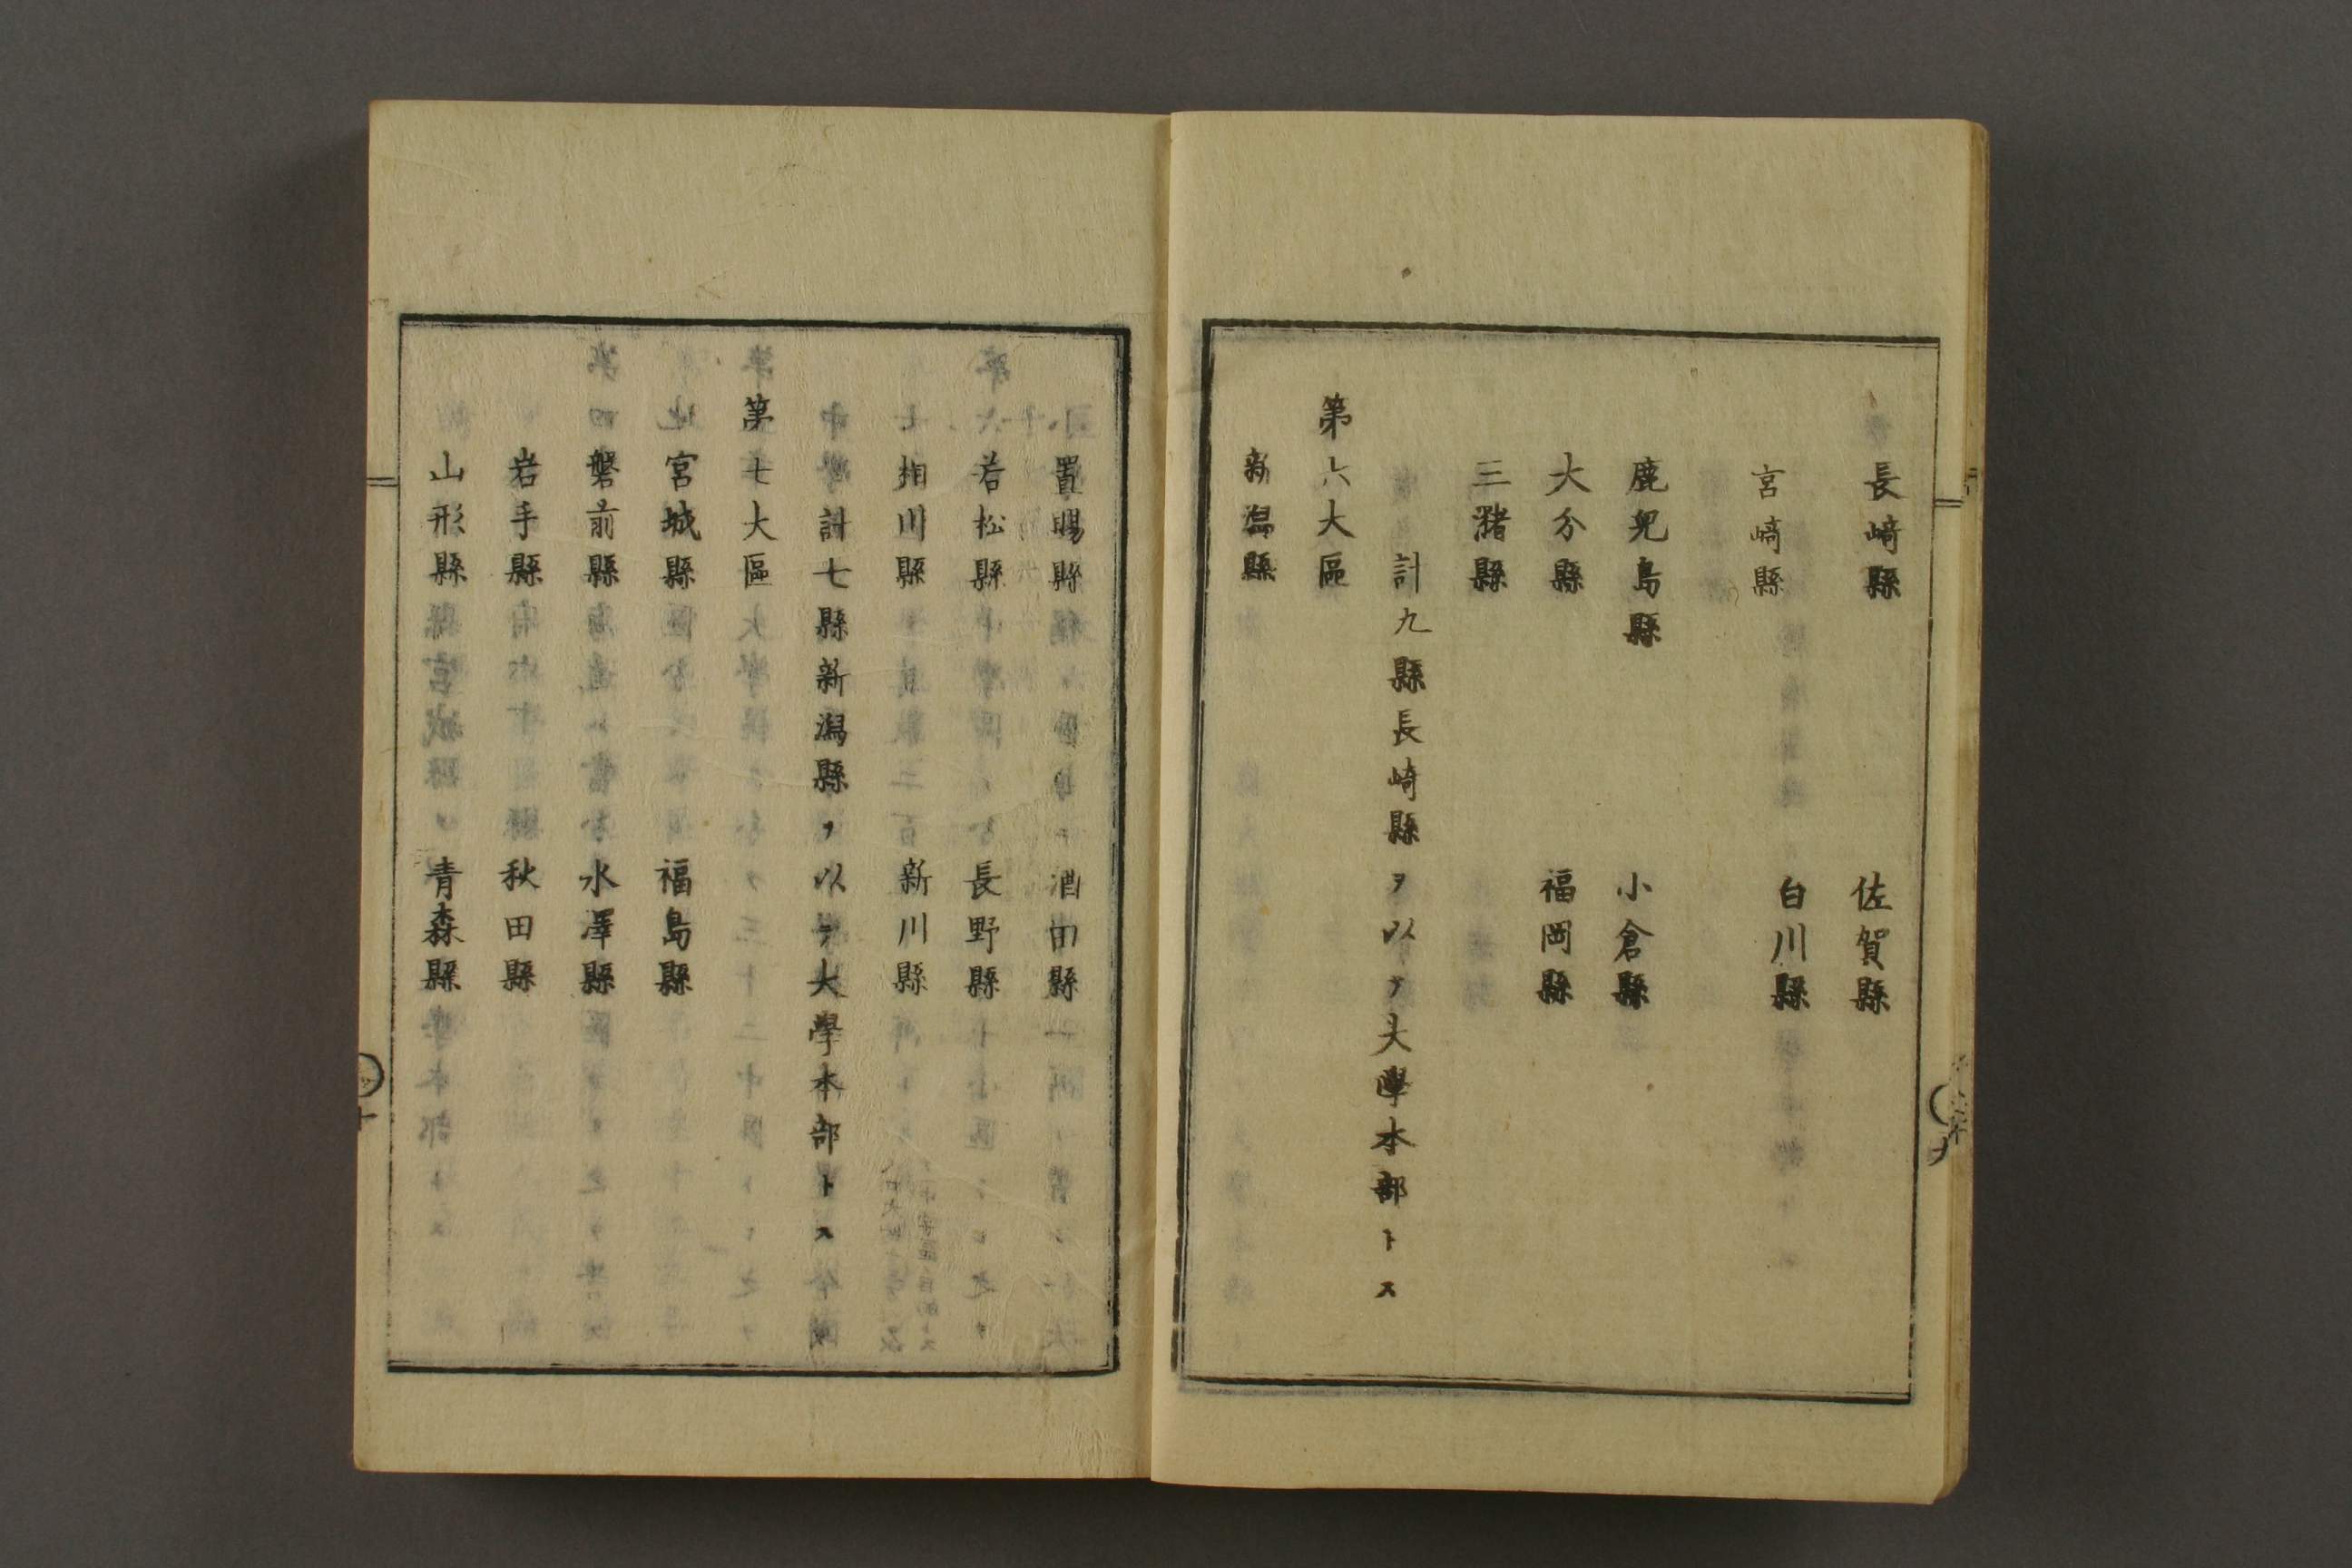 長﨑縣 佐賀縣
宮﨑縣 白川縣
鹿兒島縣 小倉縣
大分縣 福岡縣
三潴縣
計九縣長崎縣ヲ以テ大學本部トス
第六大區
新潟縣
置賜縣 酒田縣
若松縣 長野縣
相川縣 新川縣
計七縣新潟縣ヲ以テ大學本部トス
第七大區
宮城縣 福島縣
磐前縣 水澤縣
岩手縣 秋田縣
山形縣 青森縣